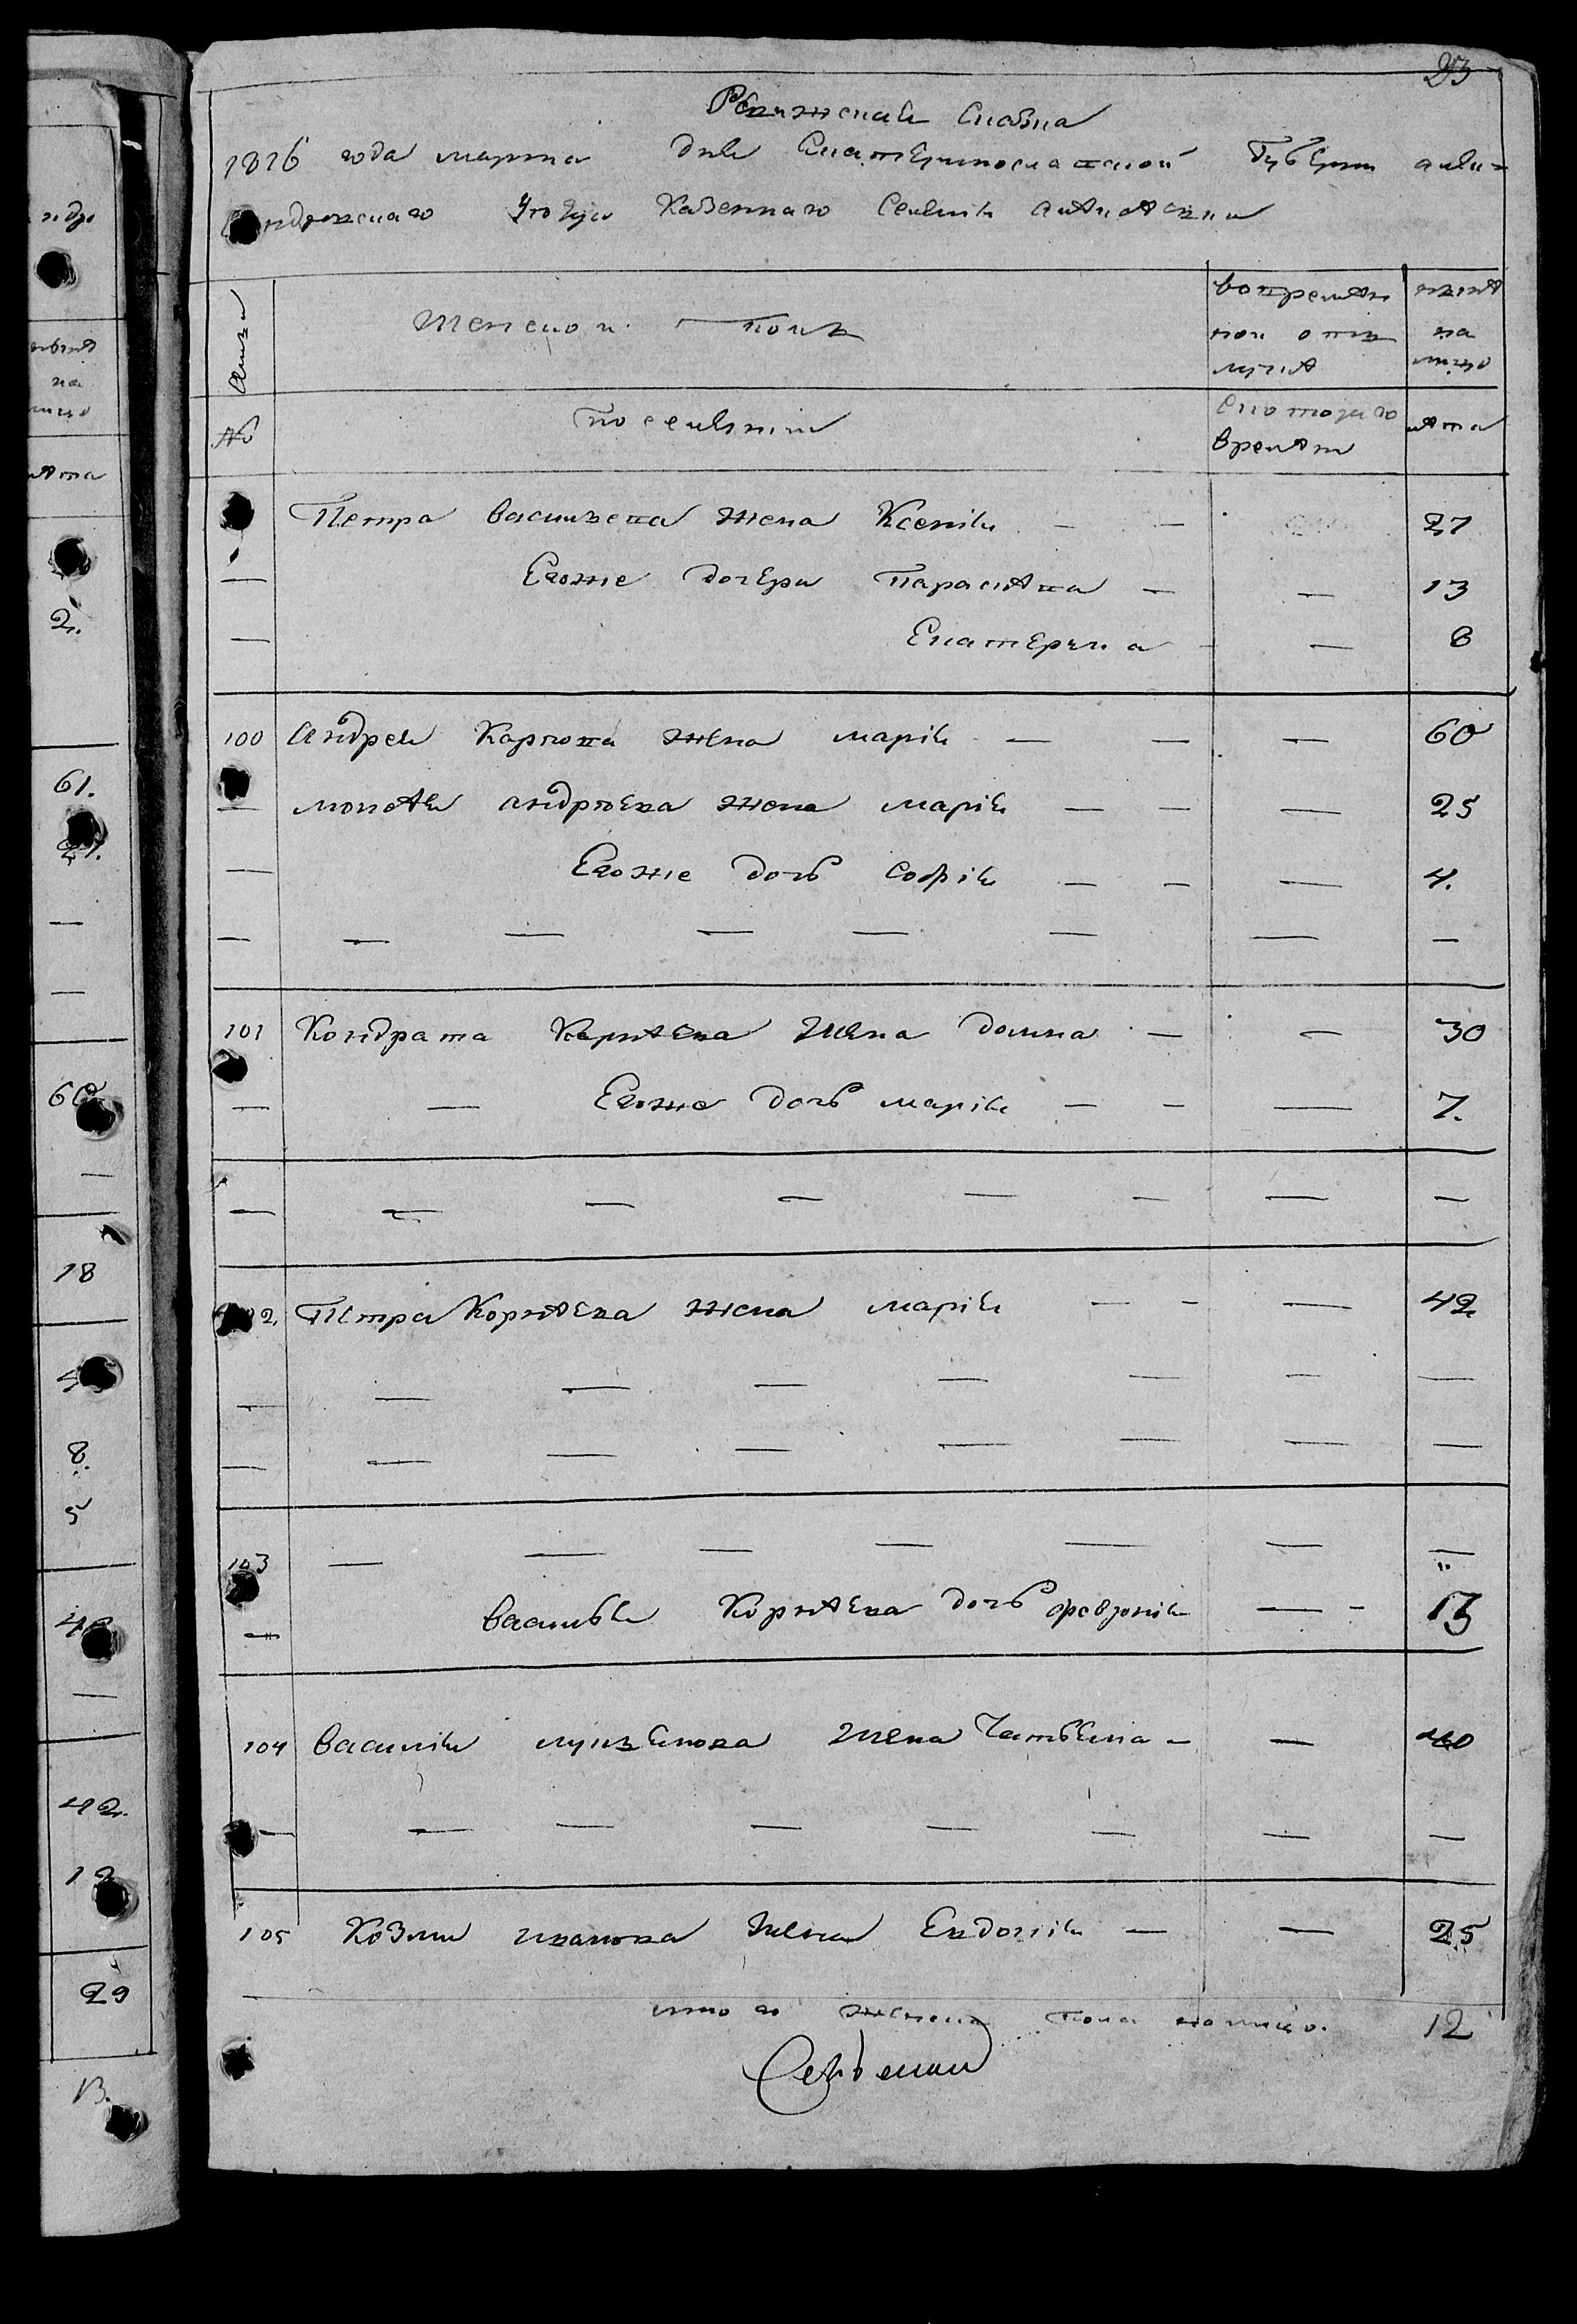 23
Ревижская Сказка
1816 года марта дня Екатеринославской Губернии алек=
сандровскаго Уезда Казеннаго Селения
Семьи
Женской полъ
во временной отлучке
ныне на лицо
№
поселянин
с котораго времени
лета
Петра Васильева жена Ксения — — 27
— Егоже дочери Параскева — — 13
— Екатерина — — 8
100 Андрея Карпова жена мария — — — 60
— моисея андреева жена мария — — — 25
— Егоже дочь софия — — — 4.
— — — — — — — —
101 Кондрата Корнеева жена домна — — 30
— — Егоже дочь мария — — — 7.
— — — — — — — —
2. Петра Корнеева жена мария — — — 42
— — — — — — — —
— — — — — — — —
103 — — — — — — —
— Василья Корнеева дочь феврония — - 13
104 Василия жена — — 40
— — — — — — — —
105 Козми иванова жена Евдокия — — 25
итого женска пола налицо. 12
61.
27.
—
—
60
—
18
8.
5
—
42.
12
29
13.